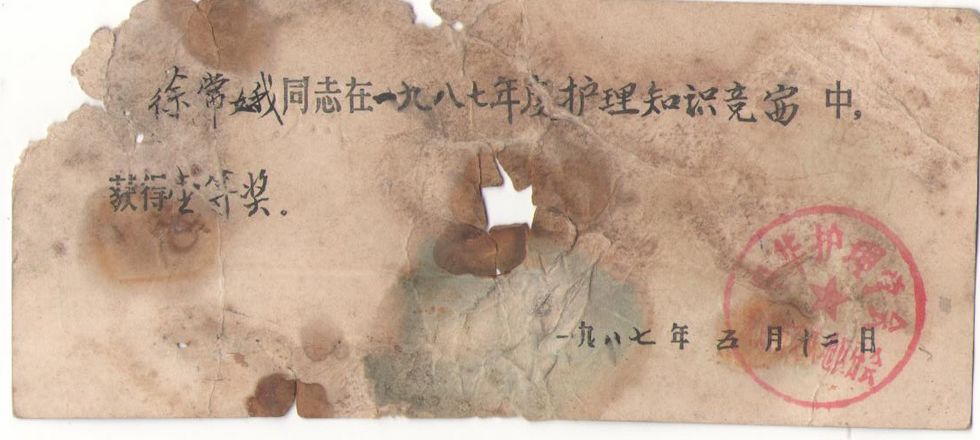 徐常娥同志在一九八七年度护理知识竞赛中，
获得 等奖。
一九八七年 五月十二日
华护理学会